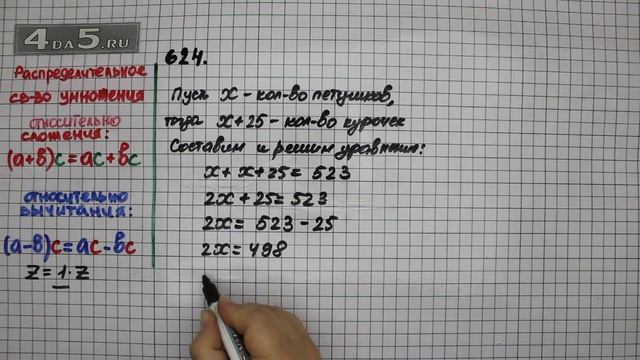 4DA5.RU
Распределительное
св-во умножения
относительно
сложения:
(a+b)c=ac+bc
относительно
вычитания:
(a-b)c=ac-bc
z=1·z
624.
Пусть x - кол-во петушков,
тогда x+25 - кол-во курочек
Составим и решим уравнение:
x+x+25=523
2x+25=523
2x=523-25
2x=498